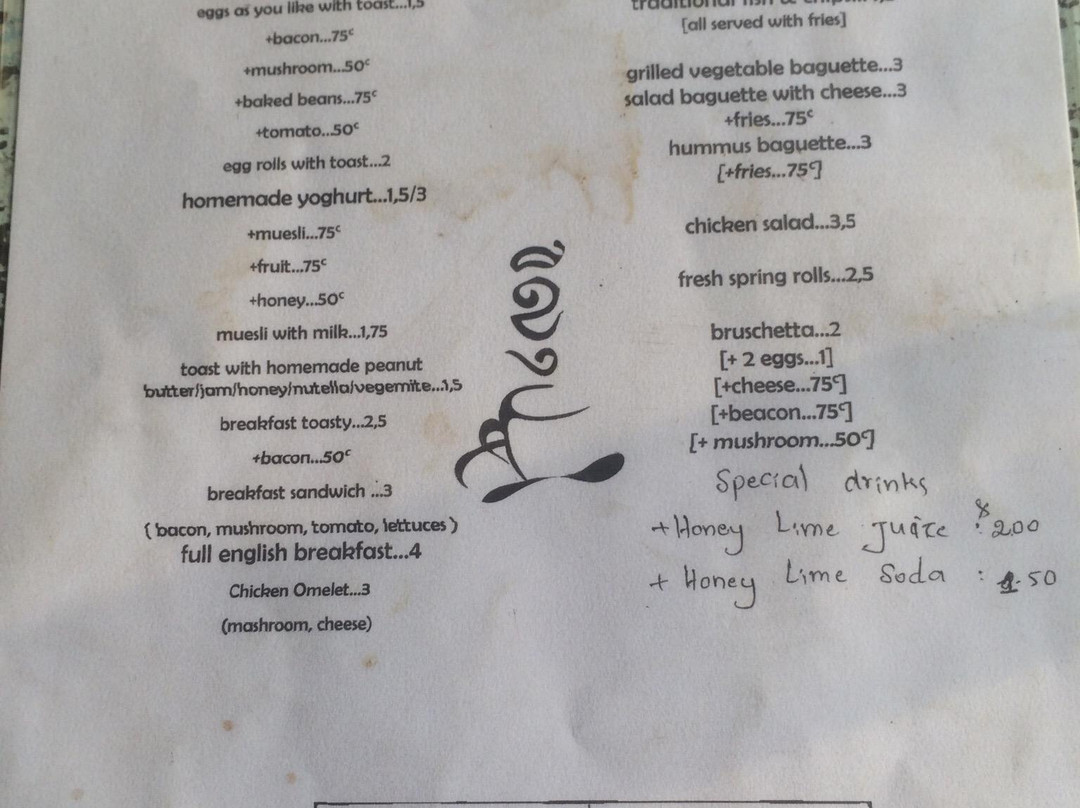 eggs as you like with toast...1,5
+bacon...75ᶜ
+mushroom...50ᶜ
+baked beans...75ᶜ
+tomato...50ᶜ
egg rolls with toast...2
homemade yoghurt...1,5/3
+muesli...75ᶜ
+fruit...75ᶜ
+honey...50ᶜ
muesli with milk...1,75
toast with homemade peanut
butter/jam/honey/nutella/vegemite...1,5
breakfast toasty...2,5
+bacon...50ᶜ
breakfast sandwich ...3
( bacon, mushroom, tomato, lettuces )
full english breakfast...4
Chicken Omelet...3
(mashroom, cheese)
traditional fish & chips...4,5
[all served with fries]
grilled vegetable baguette...3
salad baguette with cheese...3
+fries...75ᶜ
hummus baguette...3
[+fries...75ᶜ]
chicken salad...3,5
fresh spring rolls...2,5
bruschetta...2
[+ 2 eggs...1]
[+cheese...75ᶜ]
[+beacon...75ᶜ]
[+ mushroom...50ᶜ]
Special drinks
+Honey Lime Juice : $2.00
+ Honey Lime Soda : 1.50